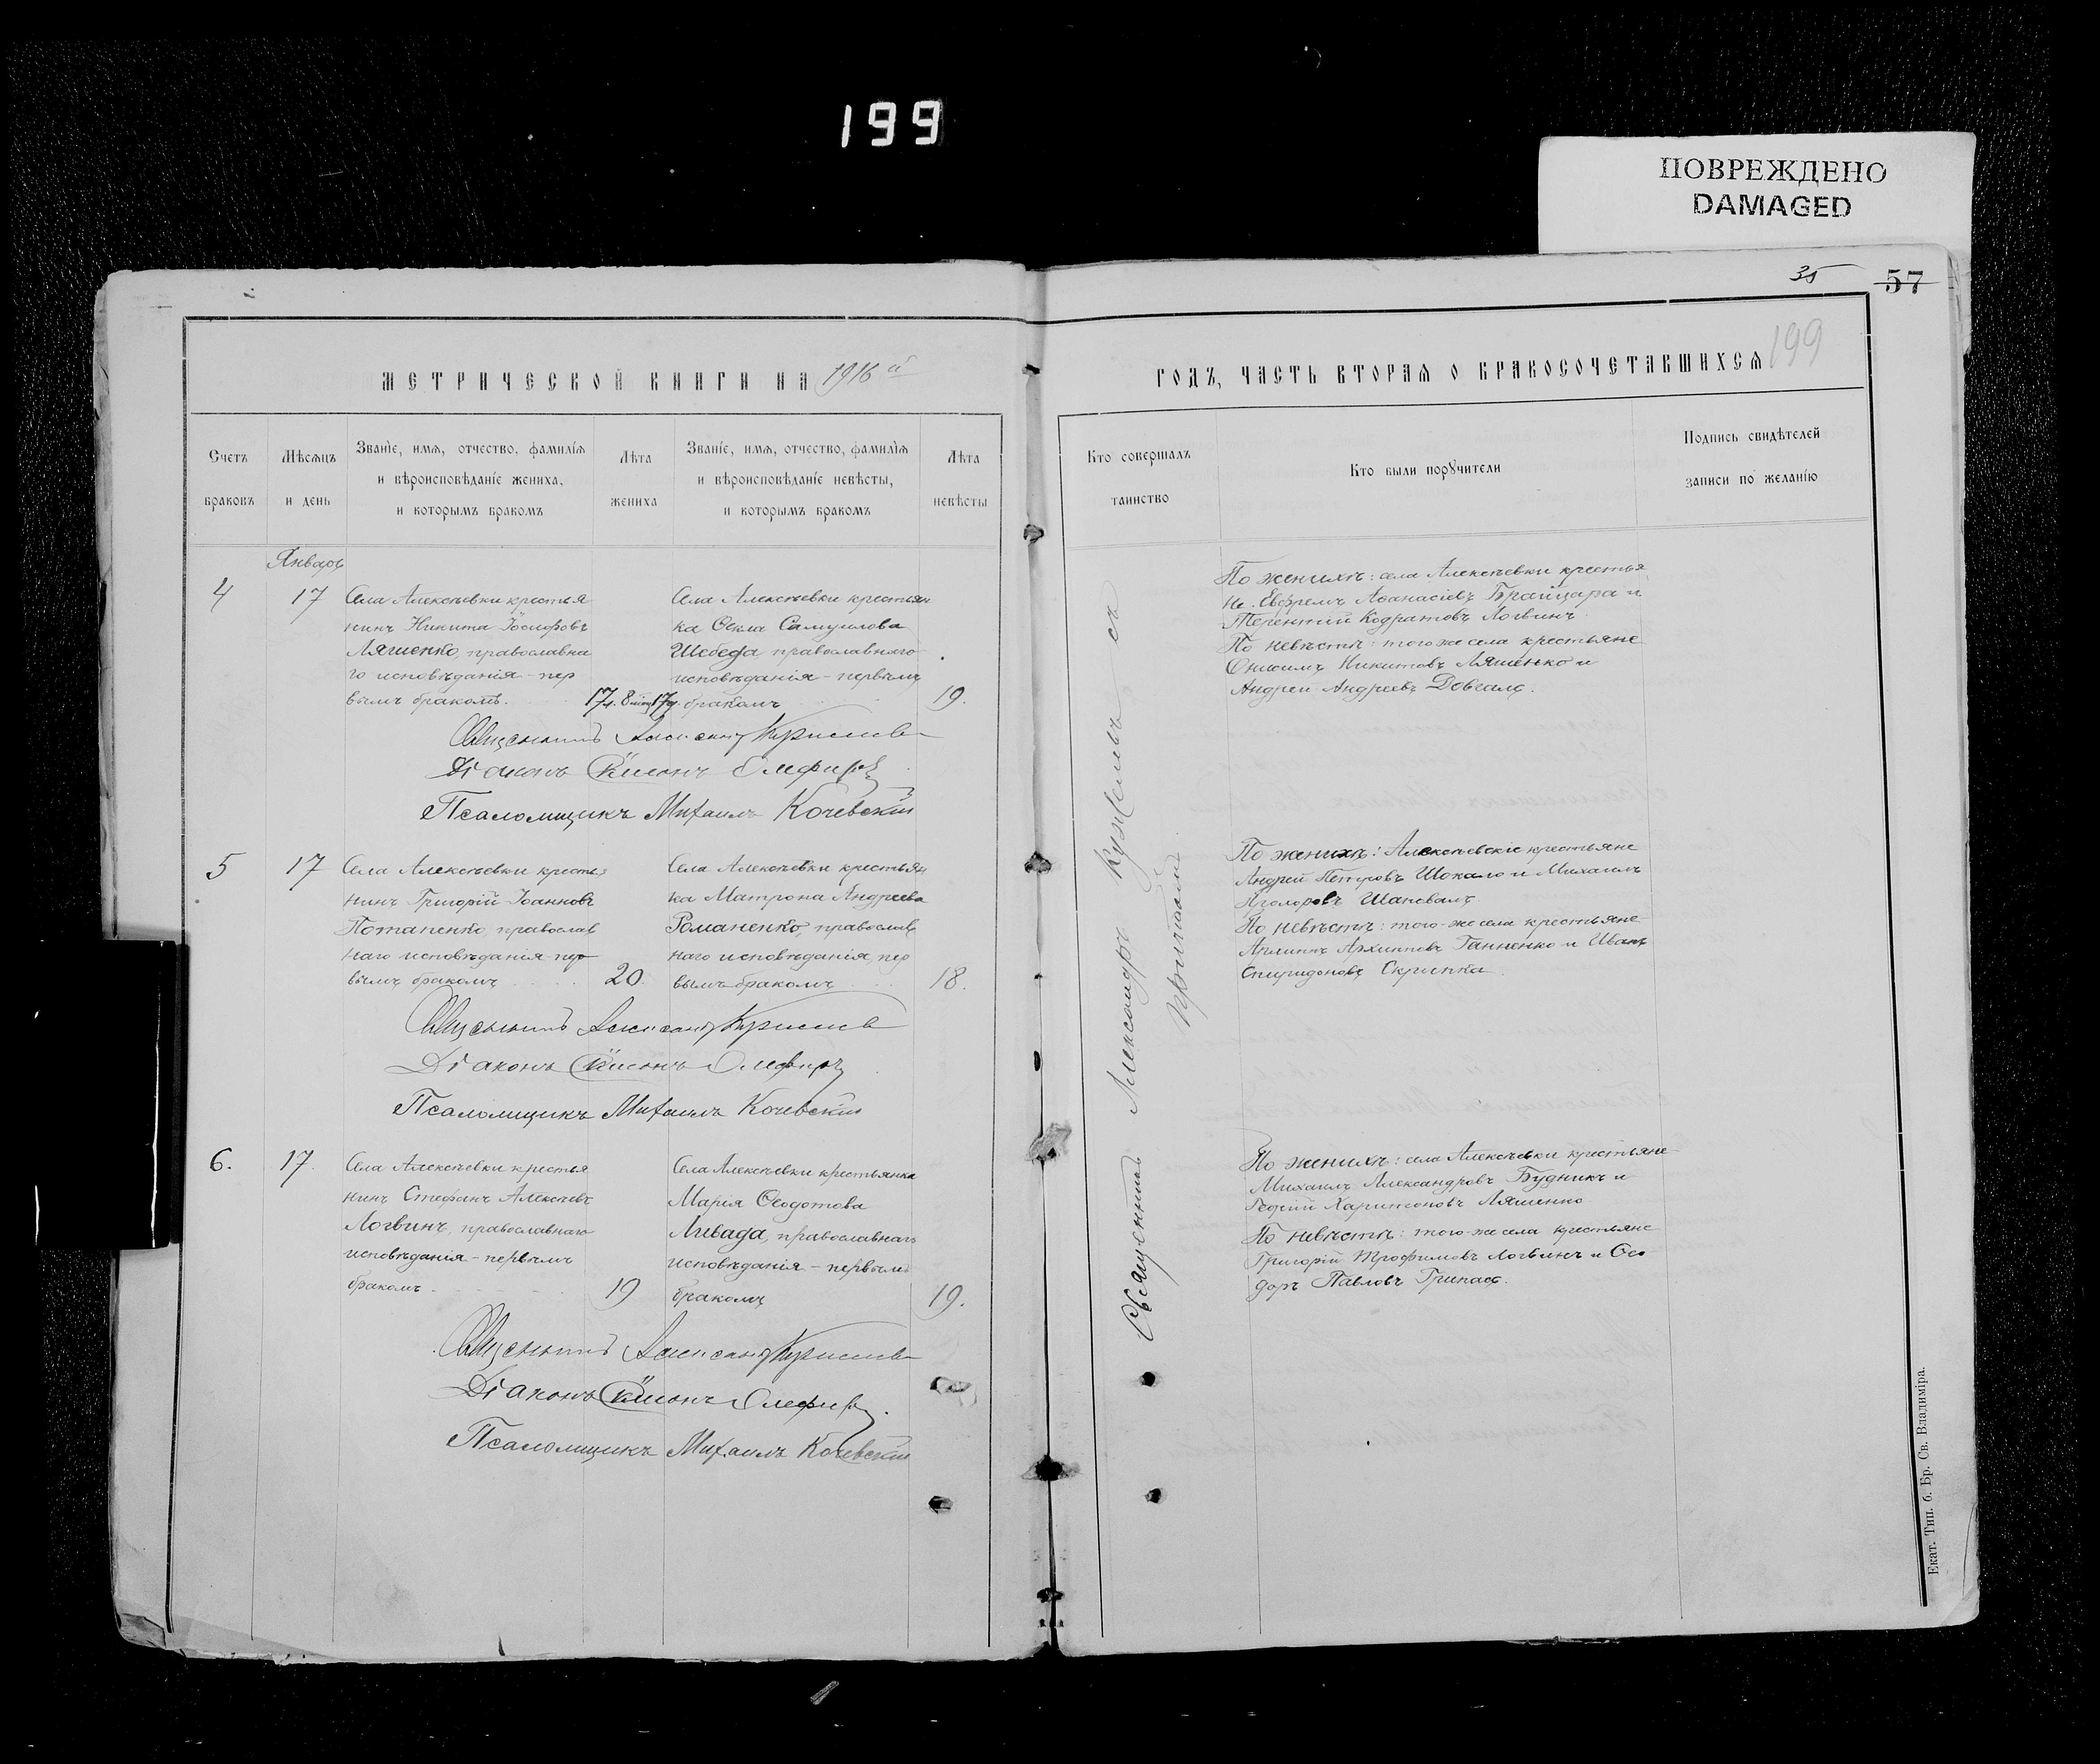 199
ПОВРЕЖДЕНО
DAMAGED
35
57
199
МЕТРИЧЕСКОЙ КНИГИ НА 1916 й
ГОДЪ, ЧАСТЬ ВТОРАЯ О БРАКОСОЧЕТАВШИХСЯ
Счетъ
браковъ
Мѣсяцъ
и день
Званіе, имя, отчество, фамилія
и вѣроисповѣданіе жениха,
и которымъ бракомъ
Лѣта
жениха
Званіе, имя, отчество, фамилія
и вѣроисповѣданіе невѣсты,
и которымъ бракомъ
Лѣта
невѣсты
Кто совершалъ
таинство
Кто были поручители
Подпись свидѣтелей
записи по желанію
Январь
4
17
Села Алексѣевки крестья
нинъ Никита Іосифовъ
Ляшенко, православна
го исповѣданія - пер
вымъ бракомъ.
Села Алексѣевки крестьян
ка Ѳекла Самуилова
Шебеда, православнаго
исповѣданія - первымъ
бракомъ
19.
Священникъ Александръ
Діаконъ Олефиръ
Псаломщикъ Михаилъ Кочевскій
По женихѣ: села Алексѣевки крестья
не. Евфремъ Аѳанасіевъ Брайцара и
Терентій Кодратовъ Логвинъ
По невѣстѣ: того же села крестьяне
Онисимъ Никитовъ Ляшенко и
Андрей Андреевъ Довгаль.
5
17
Села Алексѣевки крестья
нинъ Григорій Іоанновъ
Потапенко, православ
наго исповѣданія - пер
вымъ бракомъ
20.
Села Алексѣевки крестьян
ка Матрона Андреева
Романенко, православ
наго исповѣданія, пер
вымъ бракомъ
18.
Священникъ Александръ
Діаконъ Олефиръ
Псаломщикъ Михаилъ Кочевскій
По женихѣ: Алексѣевскіе крестьяне
Андрей Петровъ Шокало и Михаилъ
Шаповалъ
По невѣстѣ: того-же села крестьяне
Архиповъ Ганненко и Иванъ
Спиридоновъ Скрипка
6.
17.
Села Алексѣевки крестья
нинъ Стефанъ Алексѣевъ
Логвинъ, православнаго
исповѣданія - первымъ
бракомъ
19
Села Алексѣевки крестьянка
Марія Ѳеодотова
Ливада, православнаго
исповѣданія - первымъ
бракомъ
19.
Священникъ Александръ
Діаконъ Олефиръ
Псаломщикъ Михаилъ Кочевскій
По женихѣ: села Алексѣевки крестьяне
Михаилъ Александровъ Будникъ и
Георгій Харитоновъ Ляшенко
По невѣстѣ: того-же села крестьяне
Григорій Трофимовъ Логвинъ и Ѳео
доръ Павловъ Грипась.
Священникъ Александръ съ
причтомъ
Екат. Тип. б. Бр. Св. Владиміра.